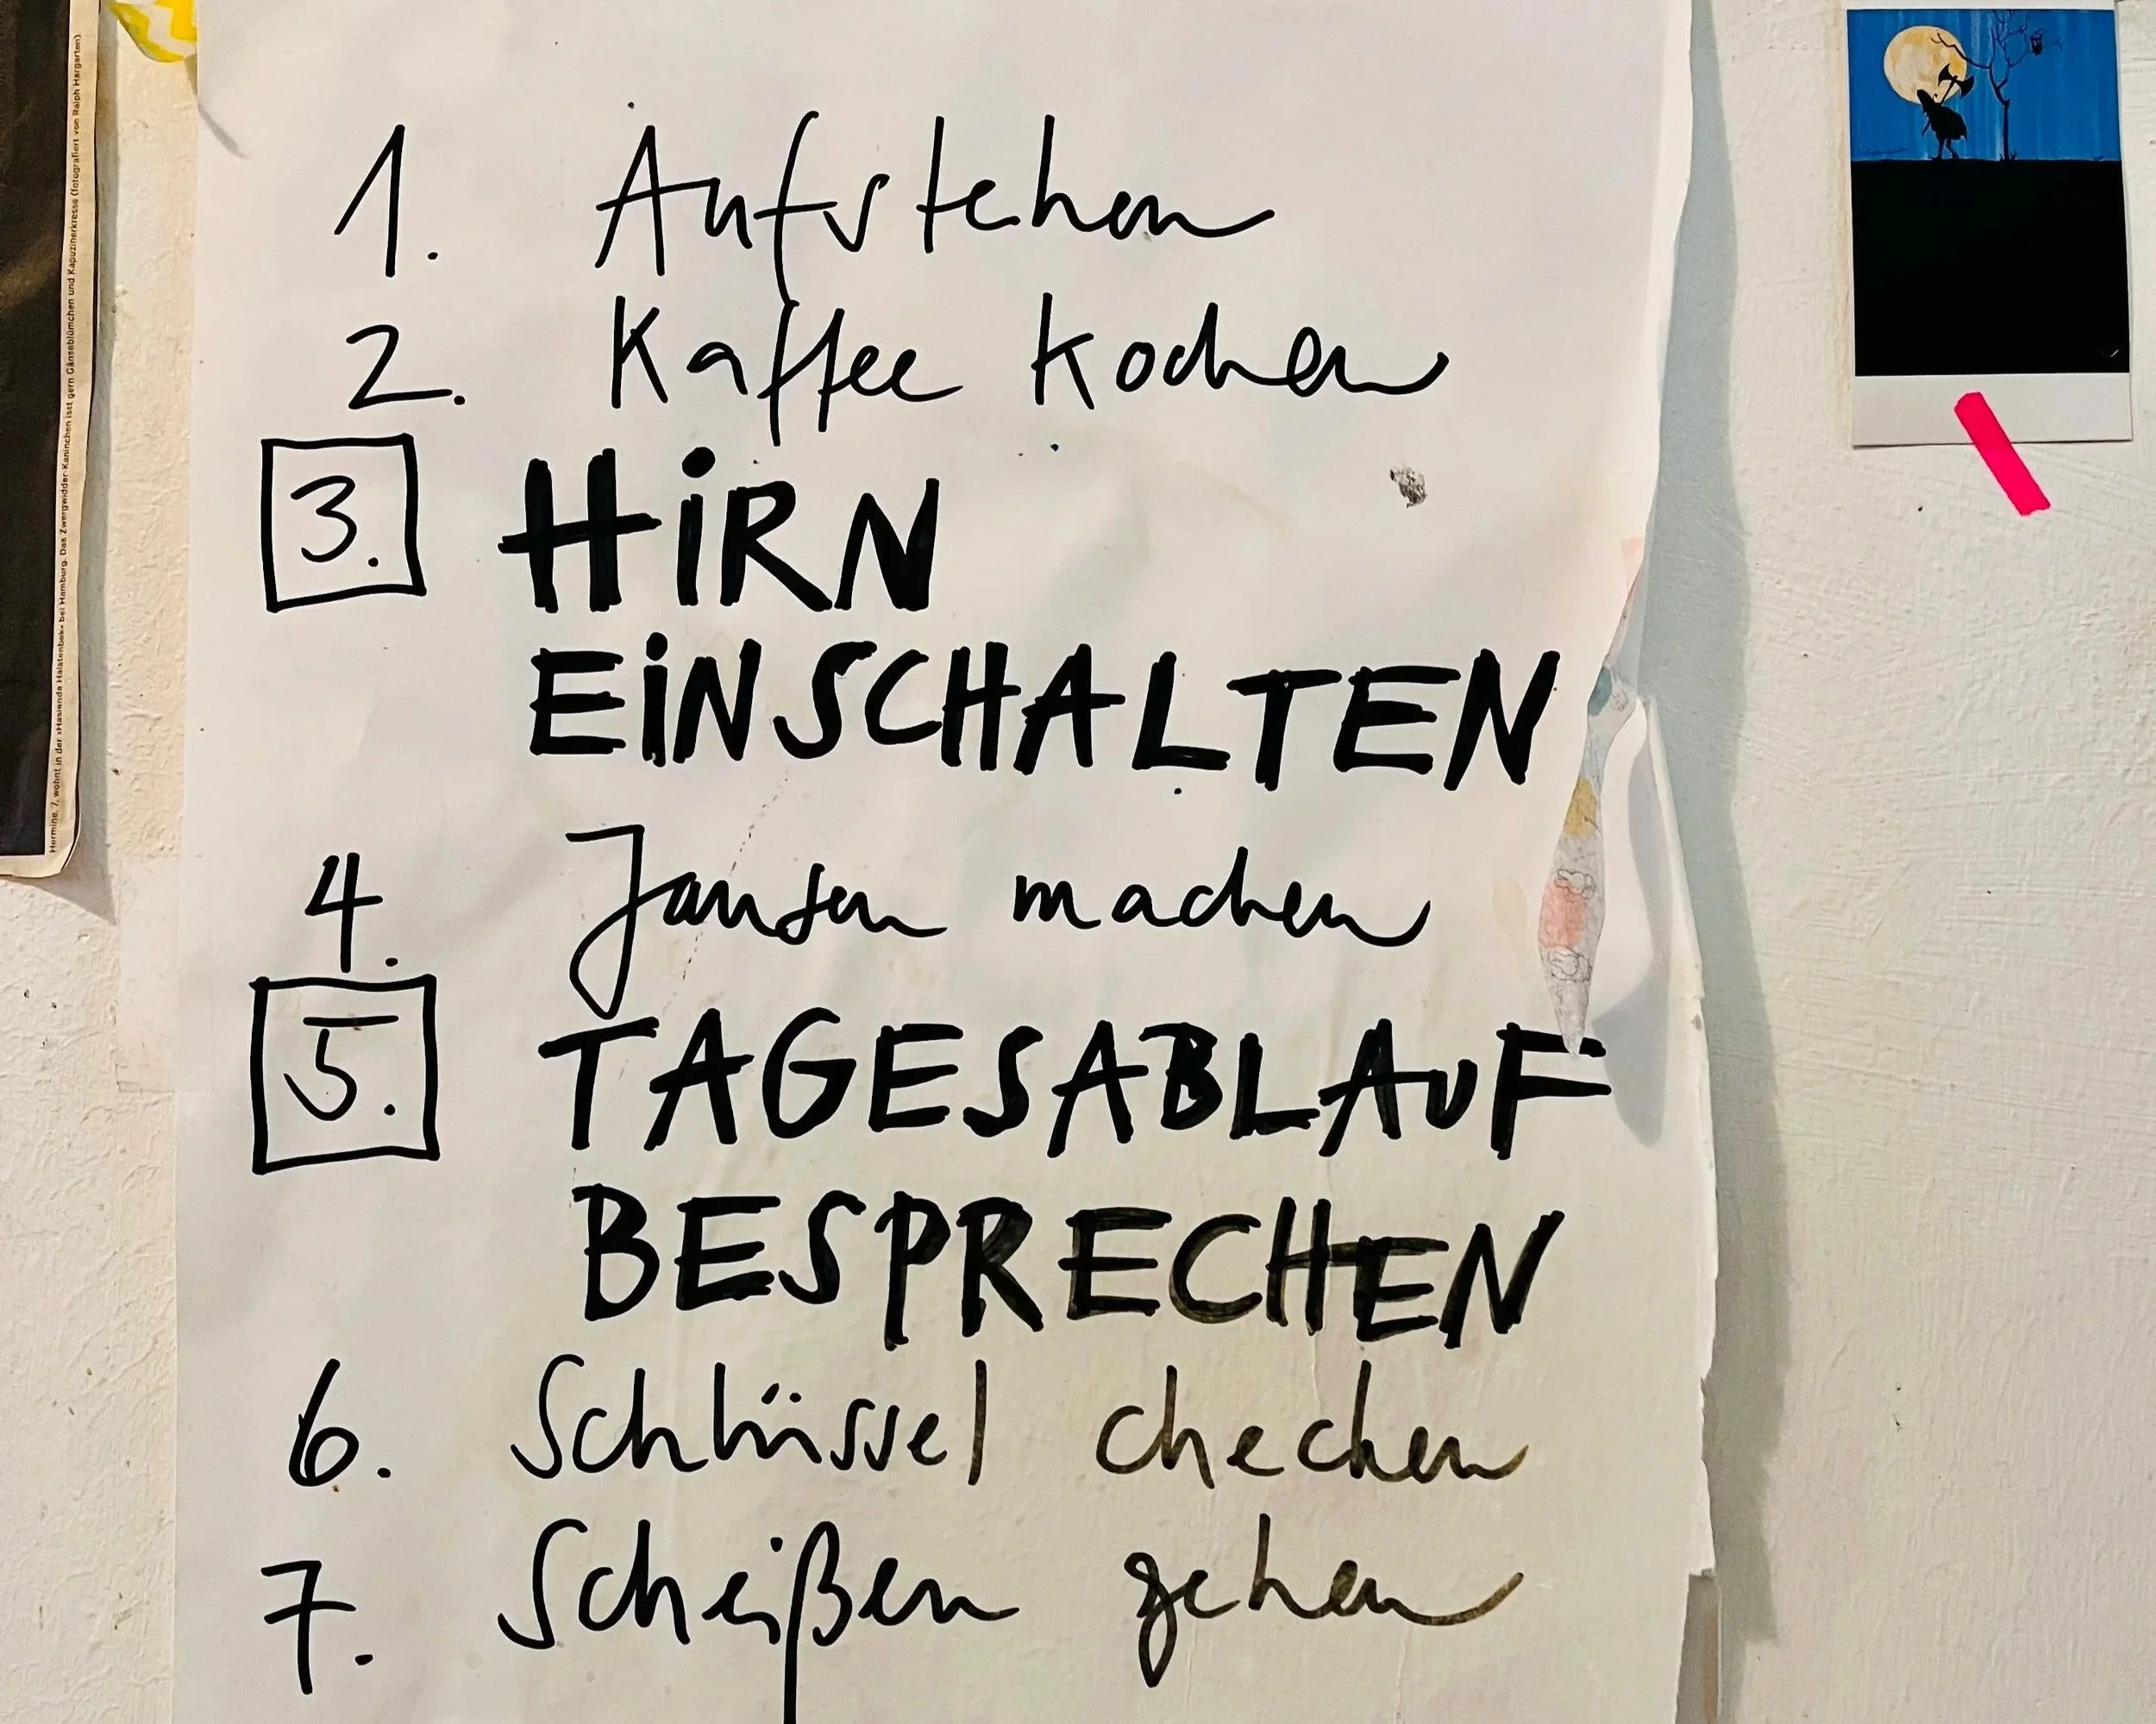 Hermine, 7, wohnt in der »Hasienda Halstenbek« bei Hamburg. Das Zwergwidder-Kaninchen isst gern Gänseblümchen und Kapuzinerkresse (fotografiert von Ralph Hargarten)
1. Aufstehen
2. Kaffee Kochen
3. HiRN
EiNSCHALTEN
4. machen
5. TAGESABLAUF
BESPRECHEN
6. Schlüssel checken
7. Scheißen gehen